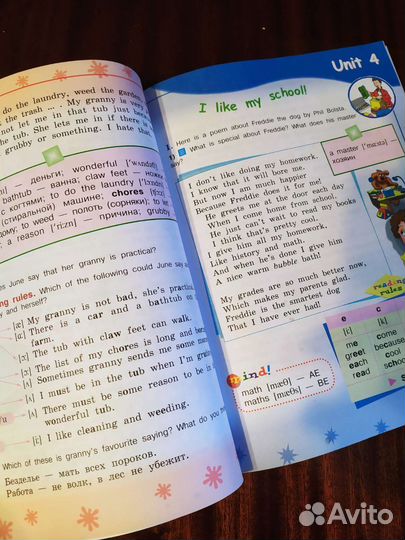 do the laundry, weed the garden
the trash ... . My granny is very
not let me in that tub just be
the tub. She lets me in if there is
grubby or something. I hate that
деньги; wonderful
bathtub — ванна; claw feet — ножки
с когтями; to do the laundry
(стиральной) машине; chores
дому; to weed — полоть (сорняки); to let
a reason — причина; grubby
es June say that her granny is practical?
ing rules. Which of the following could June say a
and herself?
My granny is not bad, she's practical
There is a car and a bathtub on
farm.
The tub with claw feet can walk.
The list of my chores is long and
Sometimes granny sends me some mone
I must be in the tub when I'm gran
There must be some reason to be in
wonderful tub.
I like cleaning and weeding.
Which of these is granny's favourite saying? What do you
Безделье — мать всех пороков.
Работа — не волк, в лес не убежит.
Unit 4
I like my school!
1. Here is a poem about Freddie the dog by Phil Bolsta.
What is special about Freddie? What does his master
say?
a master
хозяин
I don't like doing my homework.
I know that it will bore me.
But now I am much happier
Because Freddie does it for me.
He greets me at the door each day
When I come home from school.
He just can't wait to read my books
I think that's pretty cool.
I give him all my homework,
Like history and math,
And when he's done I give him
A nice warm bubble bath!
My grades are so much better now,
Which makes my parents glad.
Freddie is the smartest dog
That I have ever had!
reading
rules
e c
[i:] [k]
me come
greet because
each cool
read school
mind!
math [mæθ] — AE
maths [mæθs] — BE
Avito